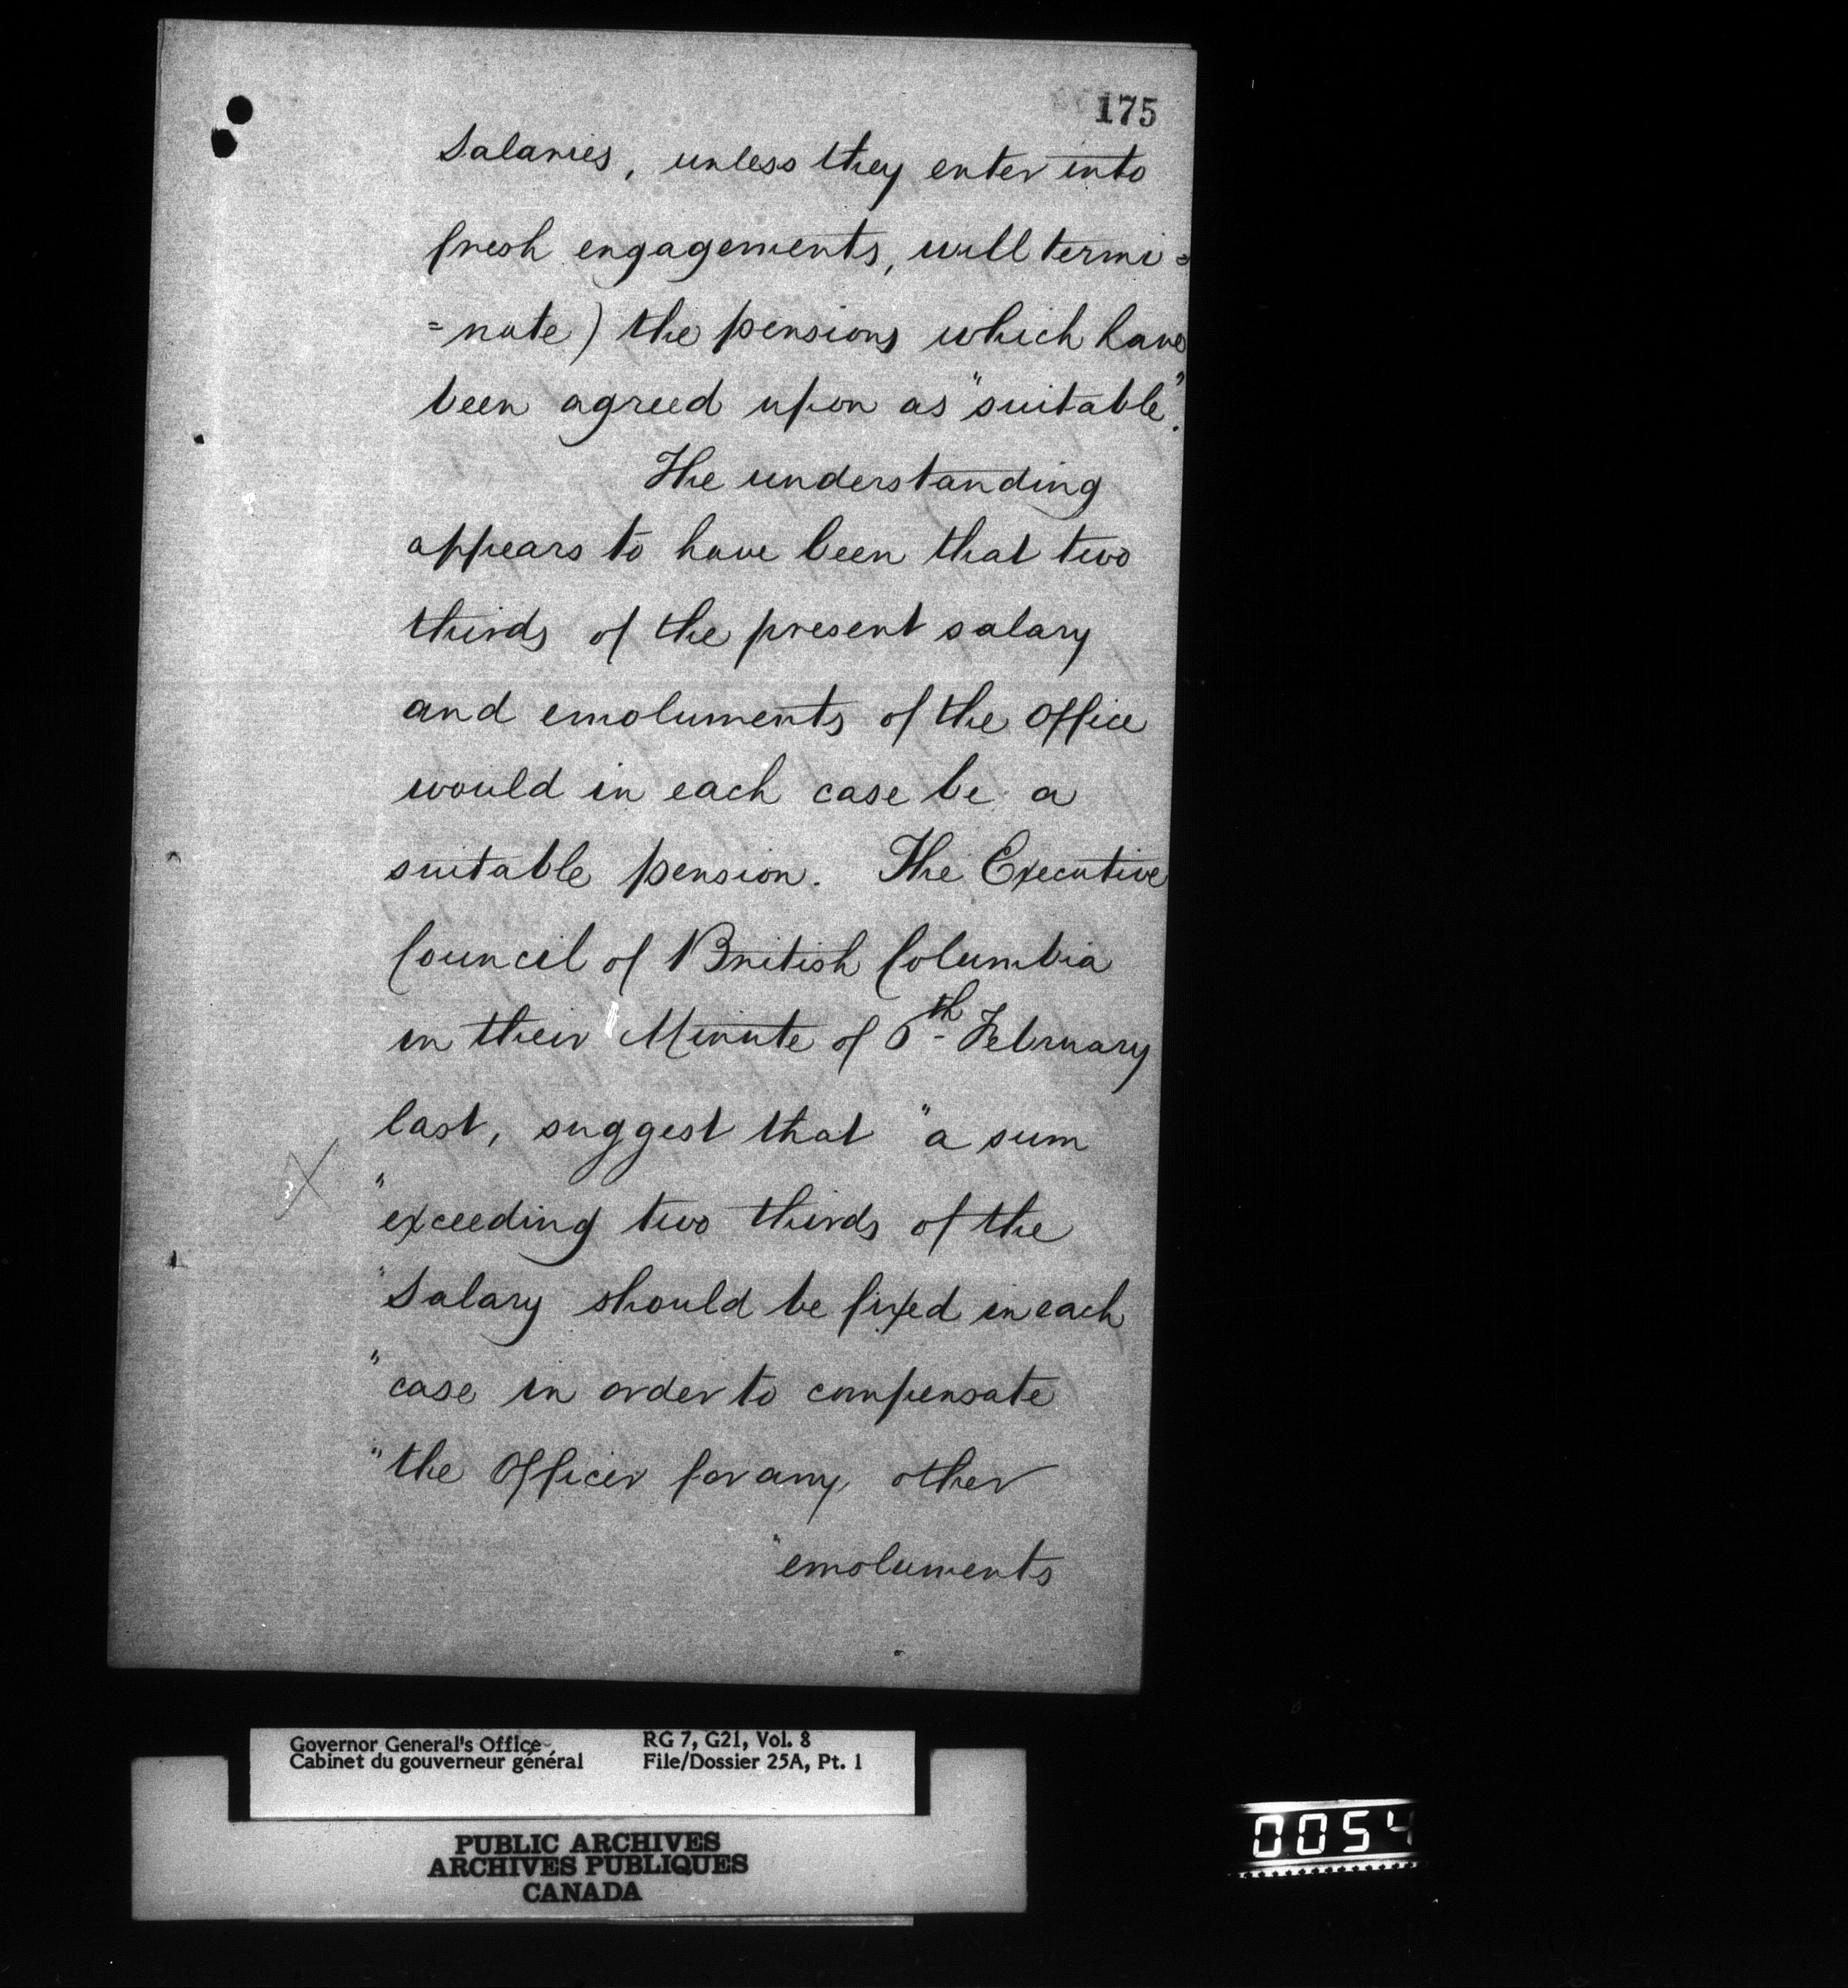 175
Salaries, unless they enter into
fresh engagements, will termi=
=nate) the pensions which have
been agreed upon as "suitable".
The understanding
appears to have been that two
thirds of the present salary
and emoluments of the Office
would in each case be a
suitable pension. The Executive
Council of British Columbia
in their Minute of 6th February
last, suggest that "a sum
"exceeding two thirds of the
"Salary should be fixed in each
"case in order to compensate
"the Officer for any other
"emoluments
Governor General's Office RG 7, G21, Vol. 8
Cabinet du gouverneur général File/Dossier 25A, Pt. 1
PUBLIC ARCHIVES
ARCHIVES PUBLIQUES
CANADA
0054